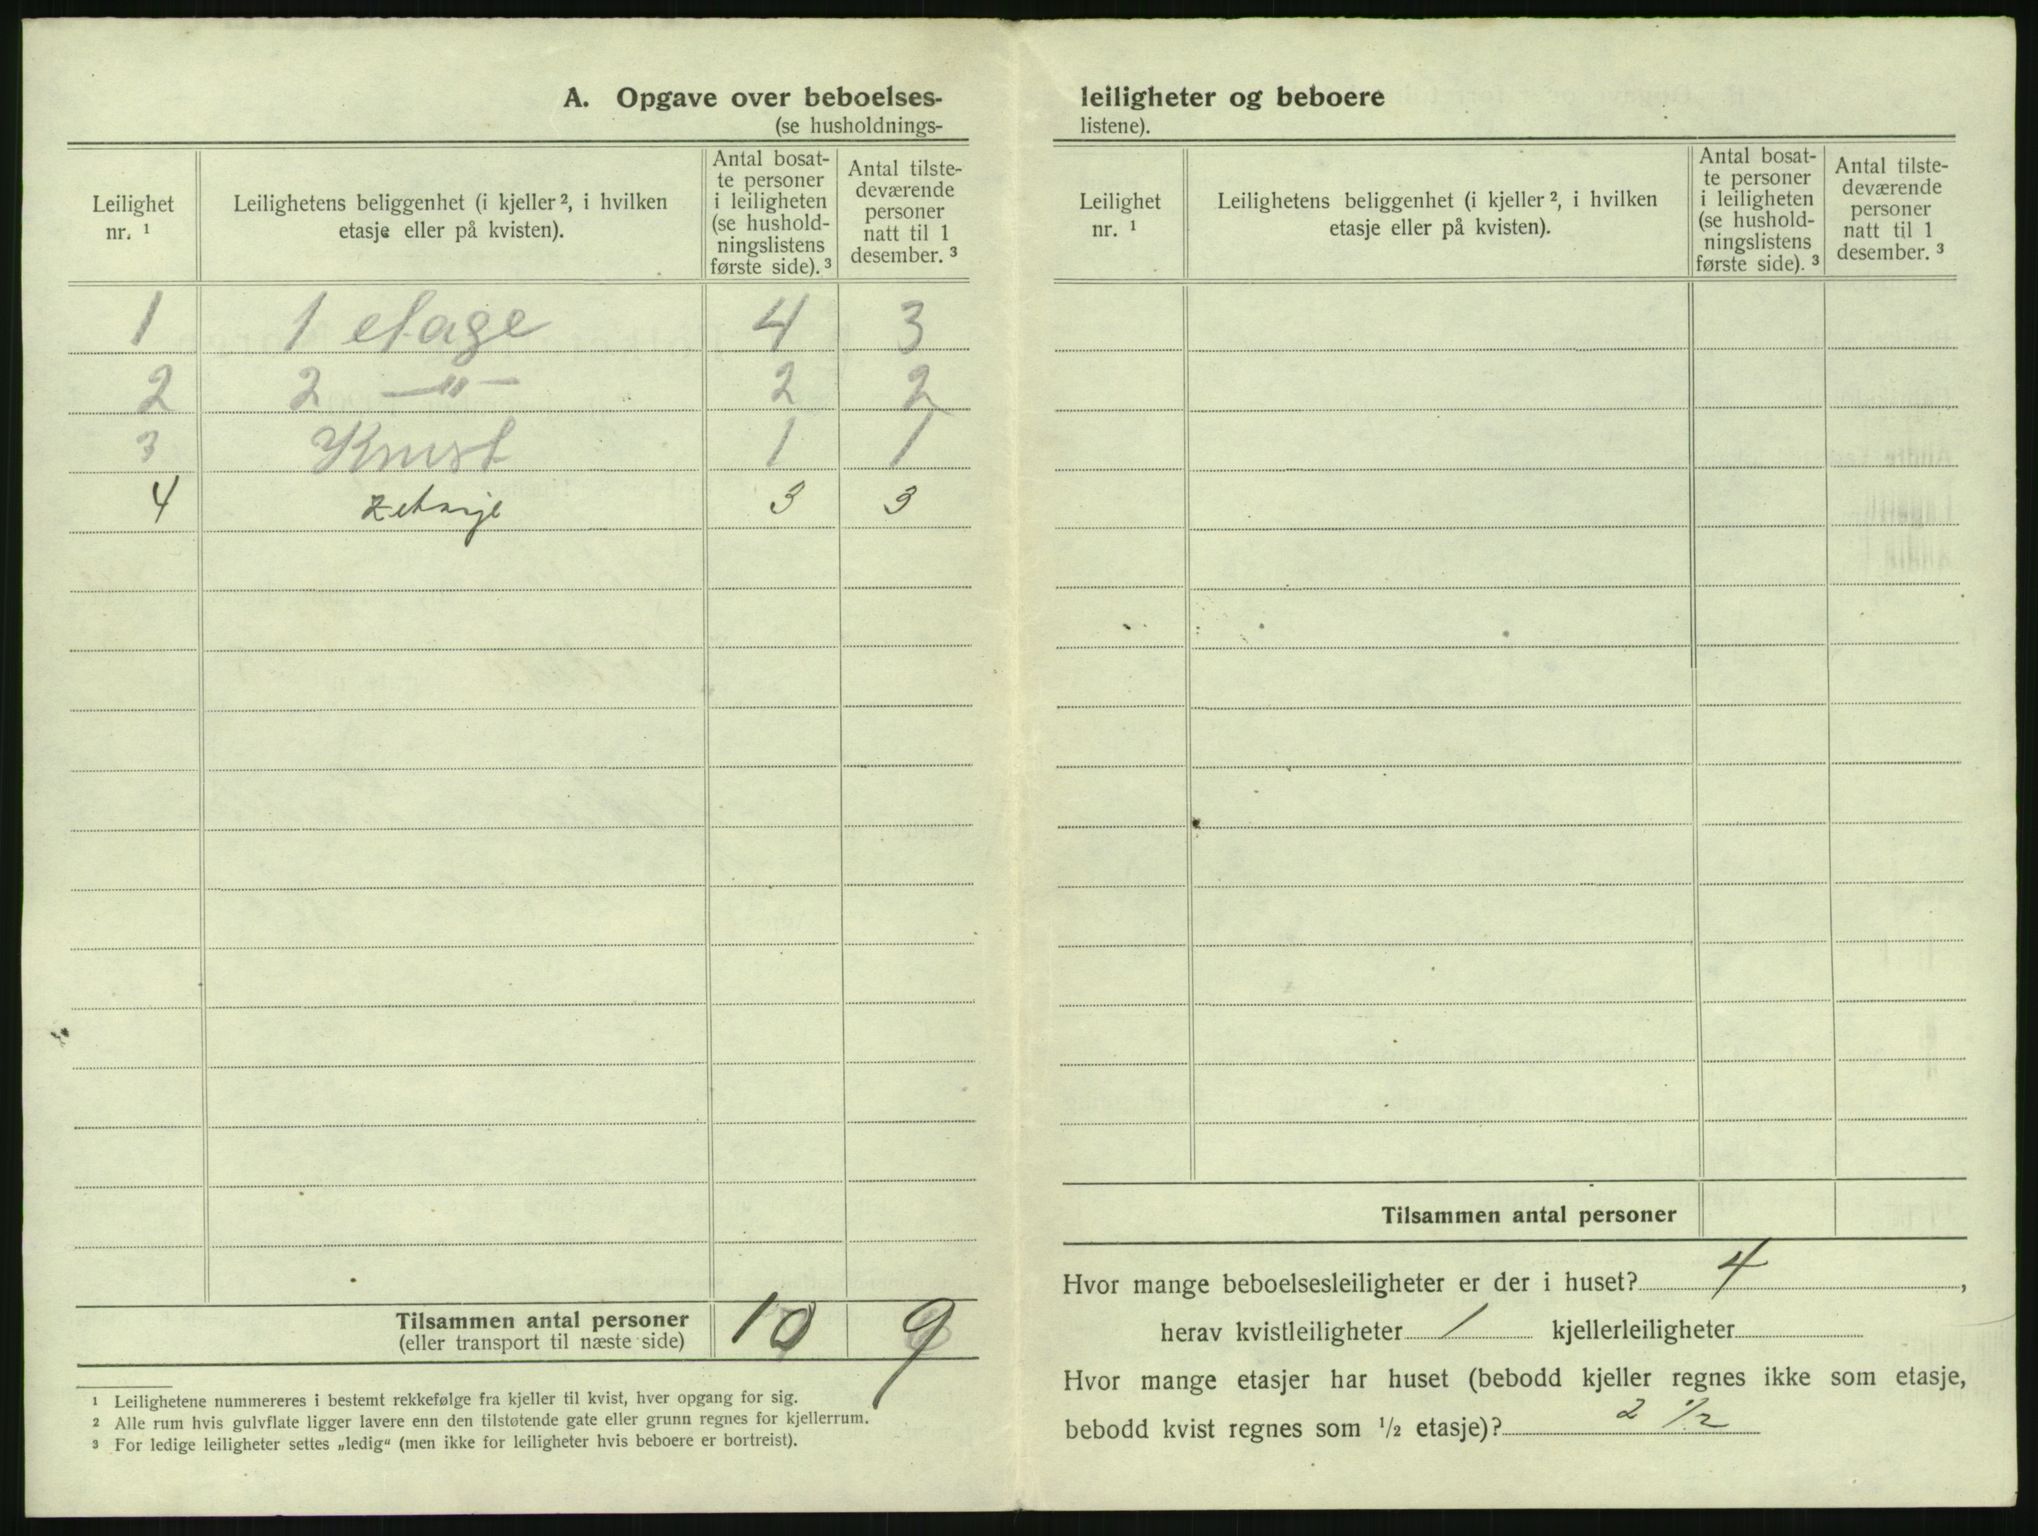 A. Opgave over beboelses-
(se husholdnings-
Leilighet
nr. ¹
Leilighetens beliggenhet (i kjeller ², i hvilken
etasje eller på kvisten).
Antal bosat-
te personer
i leiligheten
(se hushold-
ningslistens
første side). ³
Antal tilste-
deværende
personer
natt til 1
desember. ³
1 1 etage 4 3
2 2 —"— 2 2
3 Kvist 1 1
4 2 etasje 3 3
Tilsammen antal personer 10 9
(eller transport til næste side)
¹ Leilighetene nummereres i bestemt rekkefølge fra kjeller til kvist, hver opgang for sig.
² Alle rum hvis gulvflate ligger lavere enn den tilstøtende gate eller grunn regnes for kjellerrum.
³ For ledige leiligheter settes „ledig“ (men ikke for leiligheter hvis beboere er bortreist).
leiligheter og beboere
listene).
Leilighet
nr. ¹
Leilighetens beliggenhet (i kjeller ², i hvilken
etasje eller på kvisten).
Antal bosat-
te personer
i leiligheten
(se hushold-
ningslistens
første side). ³
Antal tilste-
deværende
personer
natt til 1
desember. ³
Tilsammen antal personer
Hvor mange beboelsesleiligheter er der i huset? 4 ,
herav kvistleiligheter 1 kjellerleiligheter
Hvor mange etasjer har huset (bebodd kjeller regnes ikke som etasje,
bebodd kvist regnes som ½ etasje)? 2 ½